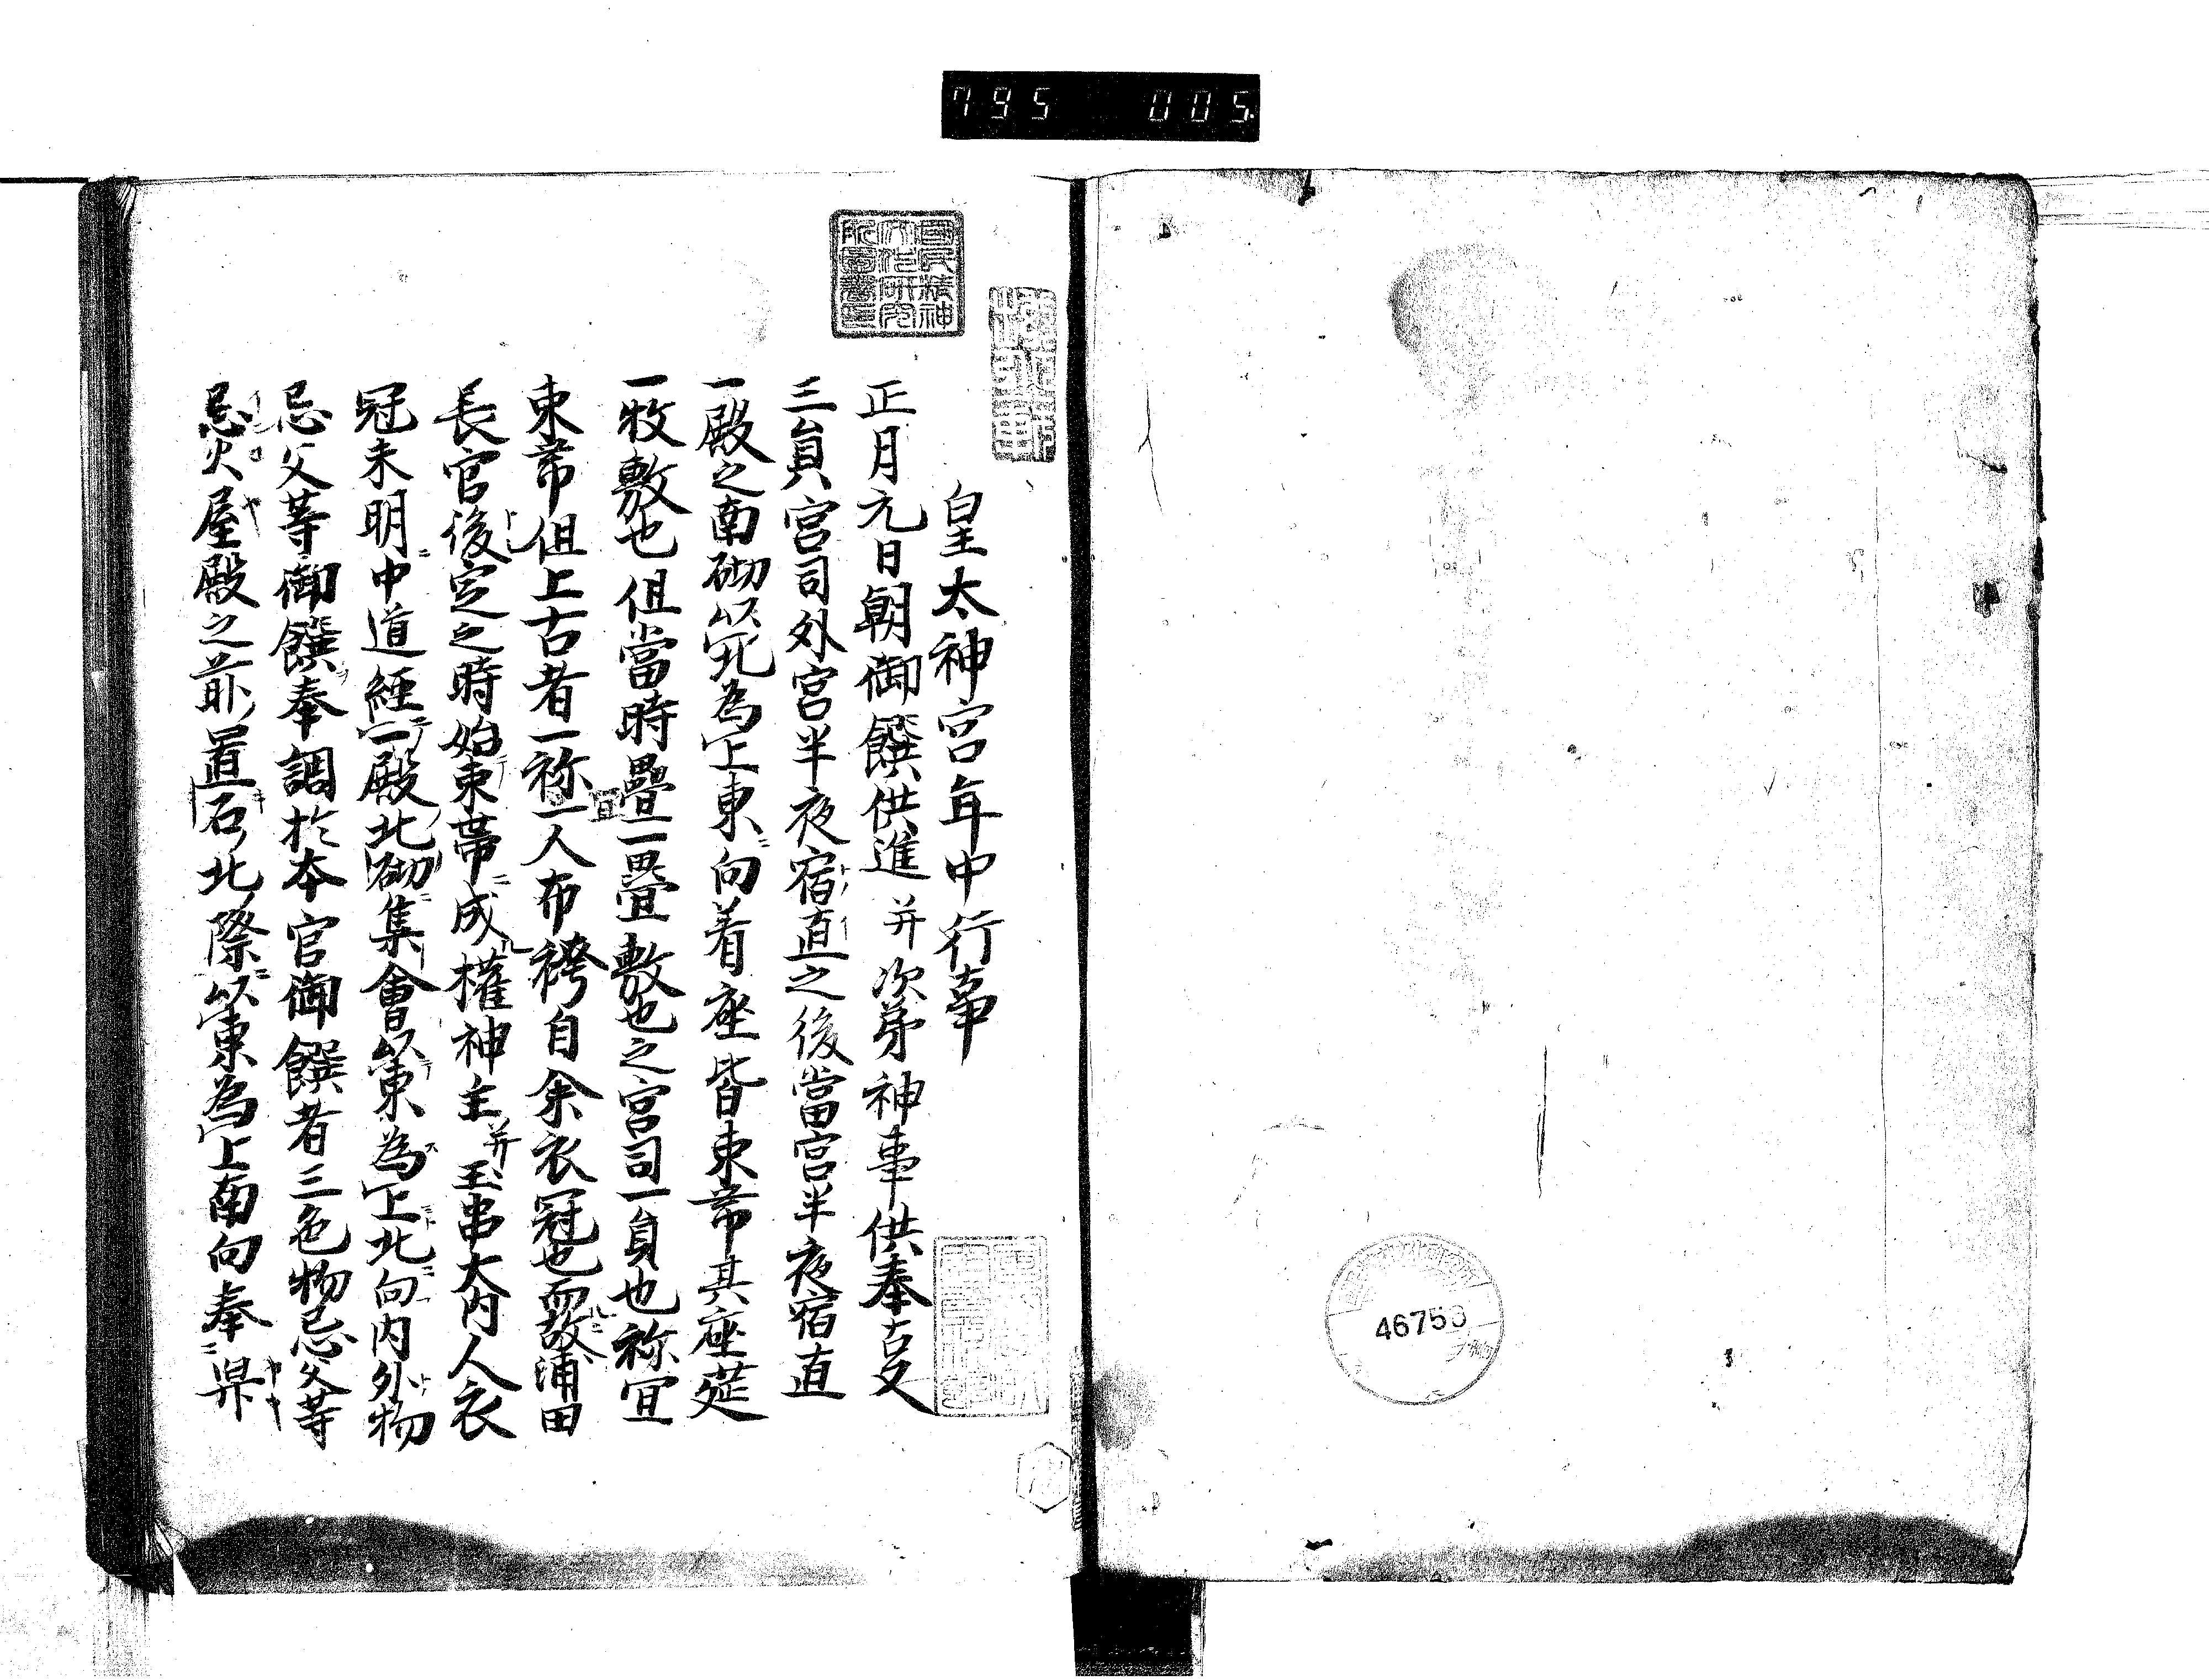 795 005
皇太神宮年中行事
正月元日朝御饌供進并次第神事供奉之
三員宮司外宮半夜宿直之後當宮半夜宿直
一殿之南砌以北為上東向着座皆束帯其座莚
一枚敷也但當時疊一疊敷也之宮司一員也祢宜
束帯但上古者一祢宜一人布袴自余衣冠也而故浦田
長官後定之時始束帯成權神主并玉串大内人衣
冠未明中道經一殿北砌集會以東為上北向内外物
忌父等御饌奉調於本官御饌者三色物忌父等
忌火屋殿之前置石北際以東為上南向奉昇
國民精神文化研究所圖書印
46753